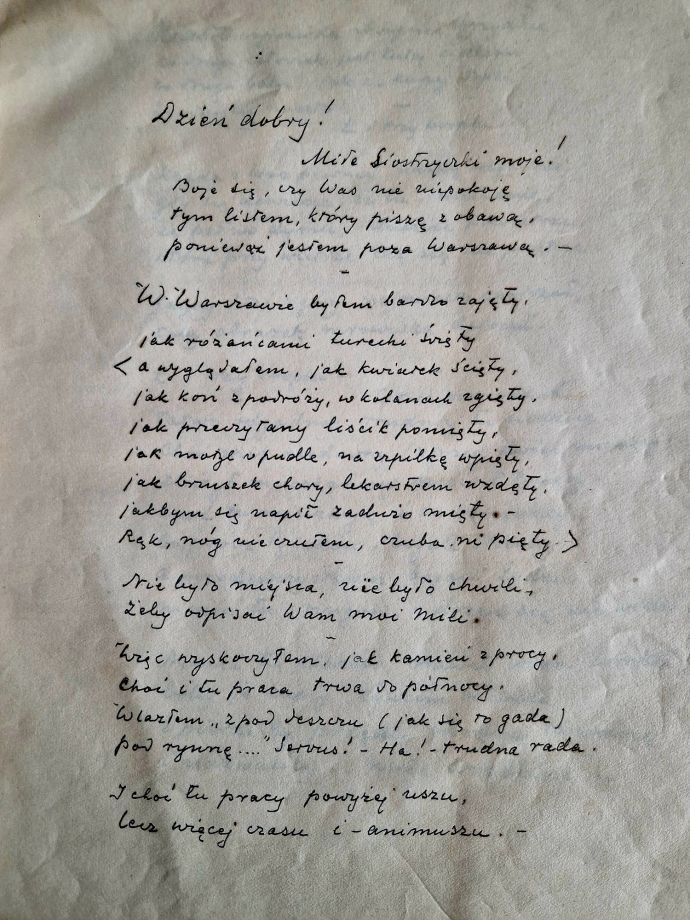 Dzień dobry!
Miłe Siostrzyczki moje!
Boję się, czy Was nie niepokoję
tym listem, który piszę z obawą,
ponieważ jestem poza Warszawą. –
–
W Warszawie byłem bardzo zajęty,
jak różańcami turecki święty
< a wyglądałem, jak kwiatek ścięty,
jak koń z podróży, w kolanach zgięty,
jak przeczytany liścik pomięty,
jak motyl w pudle, na szpilkę wpięty,
jak brzuszek chory, lekarstwem wzdęty,
jakbym się napił zadużo mięty. –
Rąk, nóg nie czułem, czuba ni pięty >
–
Nie było miejsca, nie było chwili,
żeby odpisać Wam moi mili.
–
Więc wyskoczyłem, jak kamień z procy,
choć i tu praca trwa do północy.
Wlazłem „z pod deszczu (jak się to gada)
pod rynnę...." Servus! – Ha! – trudna rada.
I choć tu pracy powyżej uszu,
lecz więcej czasu i – animuszu. –